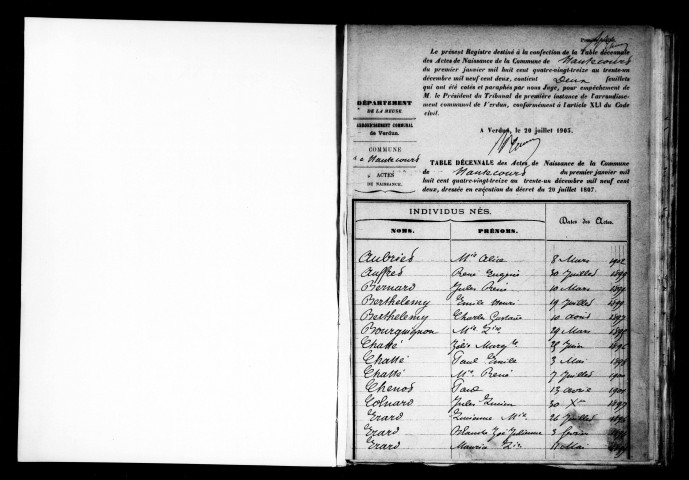 Le présent Registre destiné à la confection de la Table décennale
des Actes de Naissance de la Commune de Hautecourt
du premier janvier mil huit cent quatre-vingt-treize au trente-un
décembre mil neuf cent deux, contient Deux feuillets
qui ont été cotés et paraphés par nous Juge, pour empêchement de
M. le Président du Tribunal de première instance de l'arrondisse-
ment communal de Verdun, conformément à l'article XLI du Code
civil.
A Verdun, le 20 juillet 1903.
DÉPARTEMENT
DE LA MEUSE
ARRONDISSEMENT COMMUNAL
de Verdun.
COMMUNE
de Hautecourt
ACTES
DE NAISSANCE.
TABLE DÉCENNALE des Actes de Naissance de la Commune
de Hautecourt du premier janvier mil
huit cent quatre-vingt-treize au trente-un décembre mil neuf cent
deux, dressée en exécution du décret du 20 juillet 1807.
INDIVIDUS NÉS.
NOMS. PRÉNOMS. Dates des Actes.
Aubried Mie Alice 8 Mars 1902
Auffred René Eugène 30 Juillet 1899
Bernard Jules René 10 Mars
Berthélemy Emile Henri 19 Juillet
Berthélemy Charles Gustave 10 Août 1897
Bourguignon Mie 29 Mars
Chatté Marg.te 28 Juin
Chatté Paul Emile 3 Mai 1898
Chatté René 7 Juillet
Chenot Paul 13 avril
Colnard Jules Lucien 30 Xbre 1897
Erard Lucienne Mie 26 Juillet
Erard Blanche Julienne 3 février
Erard Maurice Mai